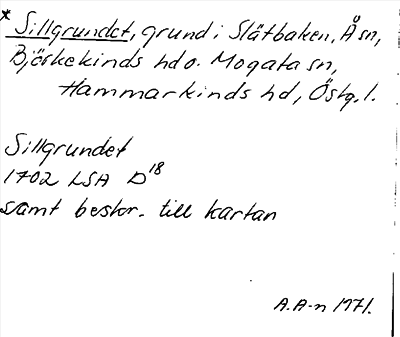 * Sillgrundet, grund i Slätbaken, Å sn,
Björkekinds hd o. Mogata sn,
Hammarkinds hd, Östg. l.
Sillgrundet
1702 LSA D18
samt beskr. till kartan
A.A-n 1971.